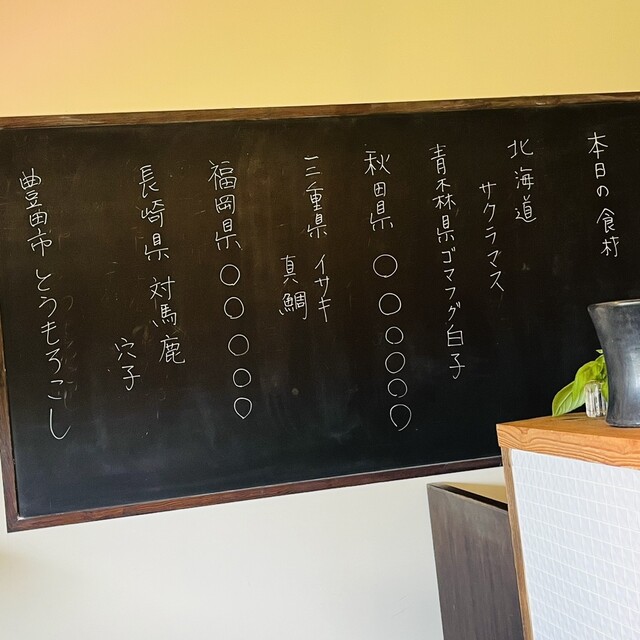 本日の食材
北海道
サクラマス
青森県ゴマフグ白子
秋田県 〇〇〇〇〇
三重県 イサキ
真鯛
福岡県〇〇〇〇〇
長崎県 対馬鹿
穴子
豊田市とうもろこし